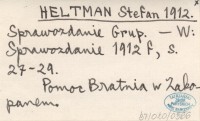 HELTMAN Stefan 1912.
Sprawozdanie Grup. — W:
Sprawozdanie 1912 r., s.
27-29.
Pomoc Bratnia w Zako-
panem.